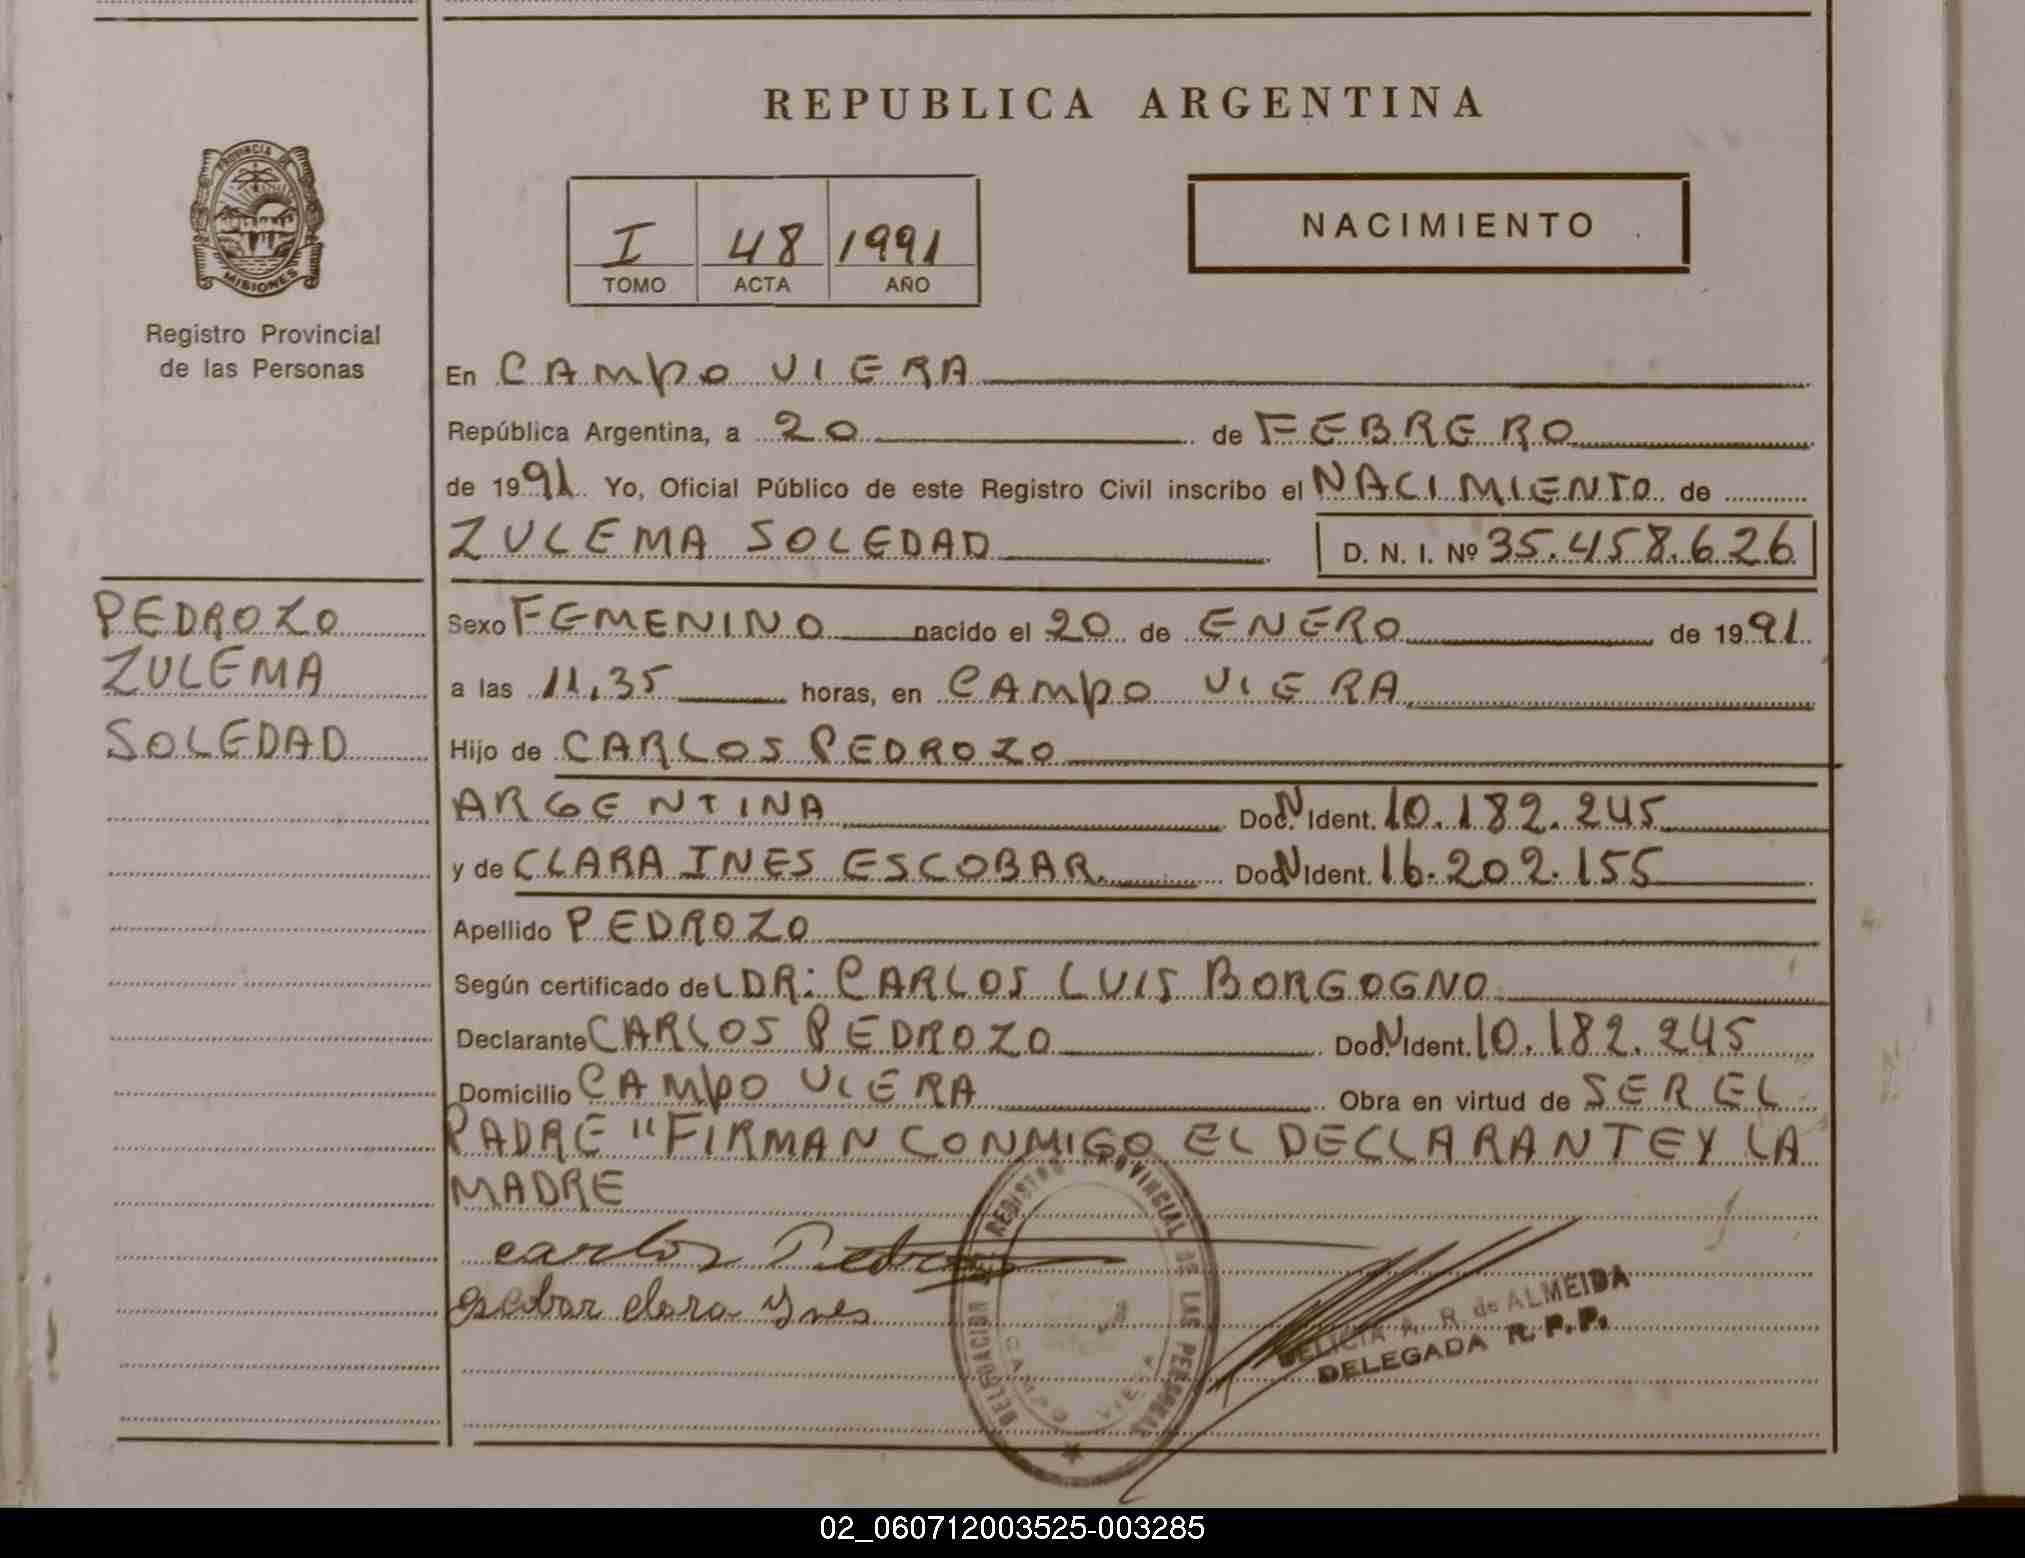 REPUBLICA ARGENTINA
PROVINCIA DE
MISIONES
Registro Provincial
de las Personas
I 48 1991
TOMO ACTA AÑO
NACIMIENTO
En CAMPO VIERA
República Argentina, a 20 de FEBRERO
de 1991 Yo, Oficial Público de este Registro Civil inscribo el NACIMIENTO de
ZULEMA SOLEDAD D. N. I. Nº 35.458.626
PEDROZO
ZULEMA
SOLEDAD
Sexo FEMENINO nacido el 20 de ENERO de 1991
a las 11,35 horas, en CAMPO VIERA
Hijo de CARLOS PEDROZO
ARGENTINA Doc. N Ident. 10.182.245
y de CLARA INES ESCOBAR. Doc. N Ident. 16.202.155
Apellido PEDROZO
Según certificado de L DR: CARLOS LUIS BORGOGNO
Declarante CARLOS PEDROZO Doc. N Ident. 10.182.245
Domicilio CAMPO VIERA Obra en virtud de SER EL
PADRE "FIRMAN CONMIGO EL DECLARANTE Y LA
MADRE
carlos Pedrozo
Escobar clara Ynes
DELEGACION DEL REGISTRO PROVINCIAL DE LAS PERSONAS
CAMPO VIERA
FELICIA A. R. de ALMEIDA
DELEGADA R. P. P.
02_060712003525-003285